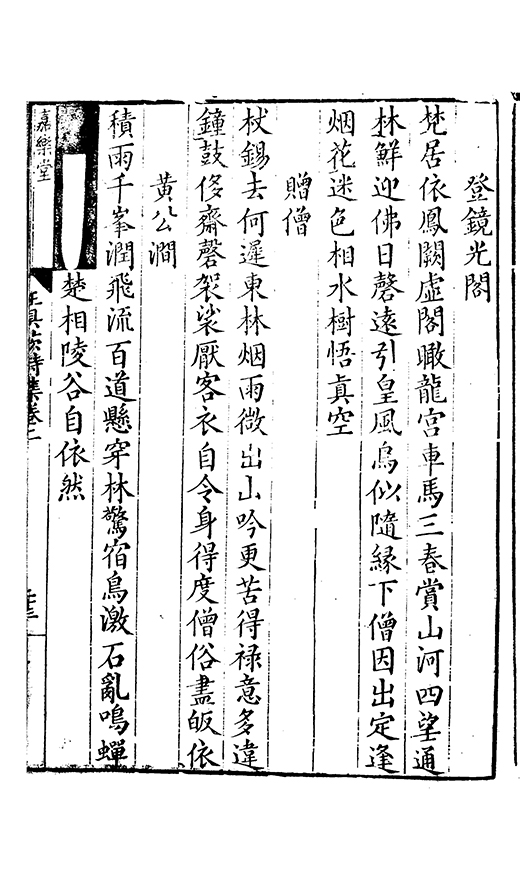 登鏡光閣
梵居依鳳闕虛閣瞰龍宮車馬三春賞山河四望通
林鮮迎佛日磬遠引皇風鳥似隨緣下僧因出定逢
烟花迷色相水樹悟眞空
贈僧
杖錫去何遲東林烟雨微出山吟更苦得祿意多違
鐘鼓侈齋磬袈裟厭客衣自令身得度僧俗盡皈依
黄公澗
積雨千峯潤飛流百道懸穿林驚宿鳥激石亂鳴蟬
楚相陵谷自依然
嘉樂堂
詩集卷二